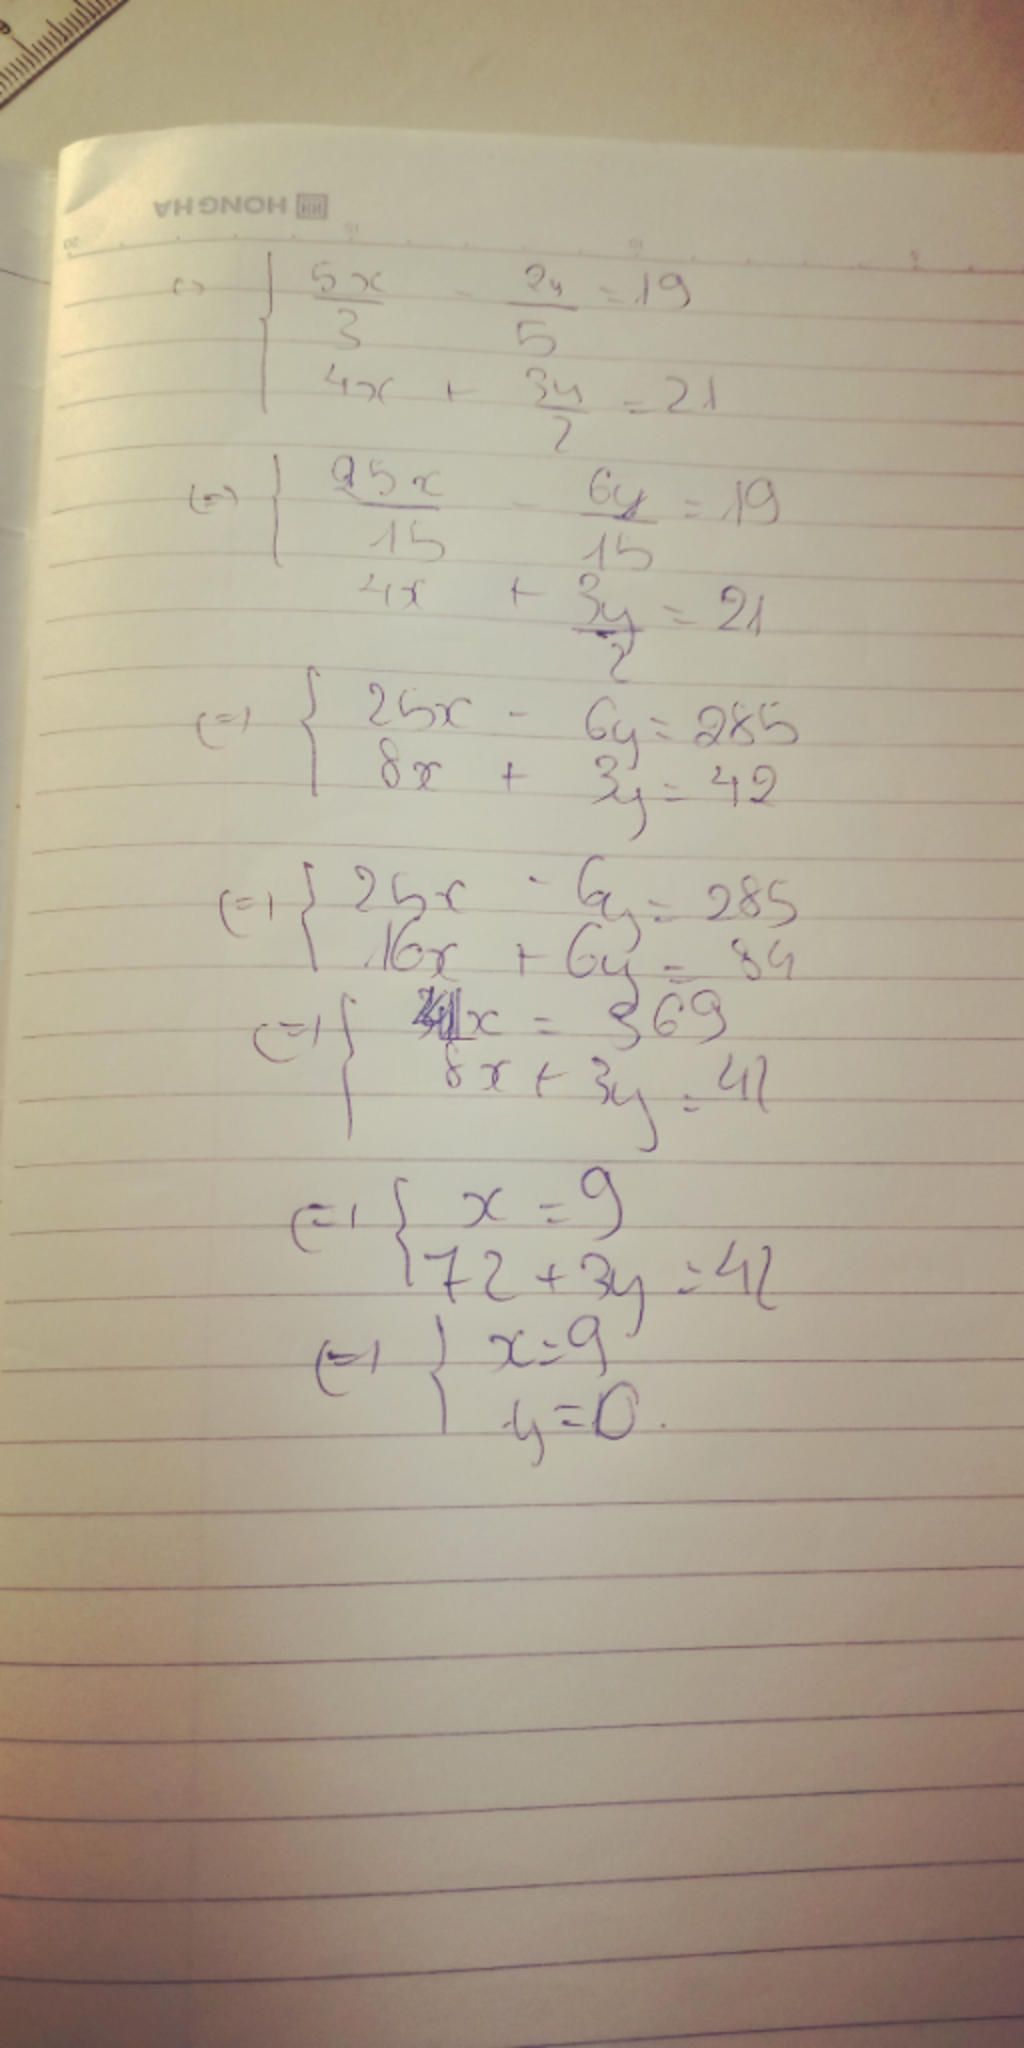 HONG HA
⇔ { 5x/3 - 2y/5 = 19
4x + 3y/2 = 21
⇔ { 25x/15 - 6y/15 = 19
4x + 3y/2 = 21
⇔ { 25x - 6y = 285
8x + 3y = 42
⇔ { 25x - 6y = 285
16x + 6y = 84
⇔ { 41x = 369
8x + 3y = 42
⇔ { x = 9
72 + 3y = 42
⇔ { x = 9
y = 0.